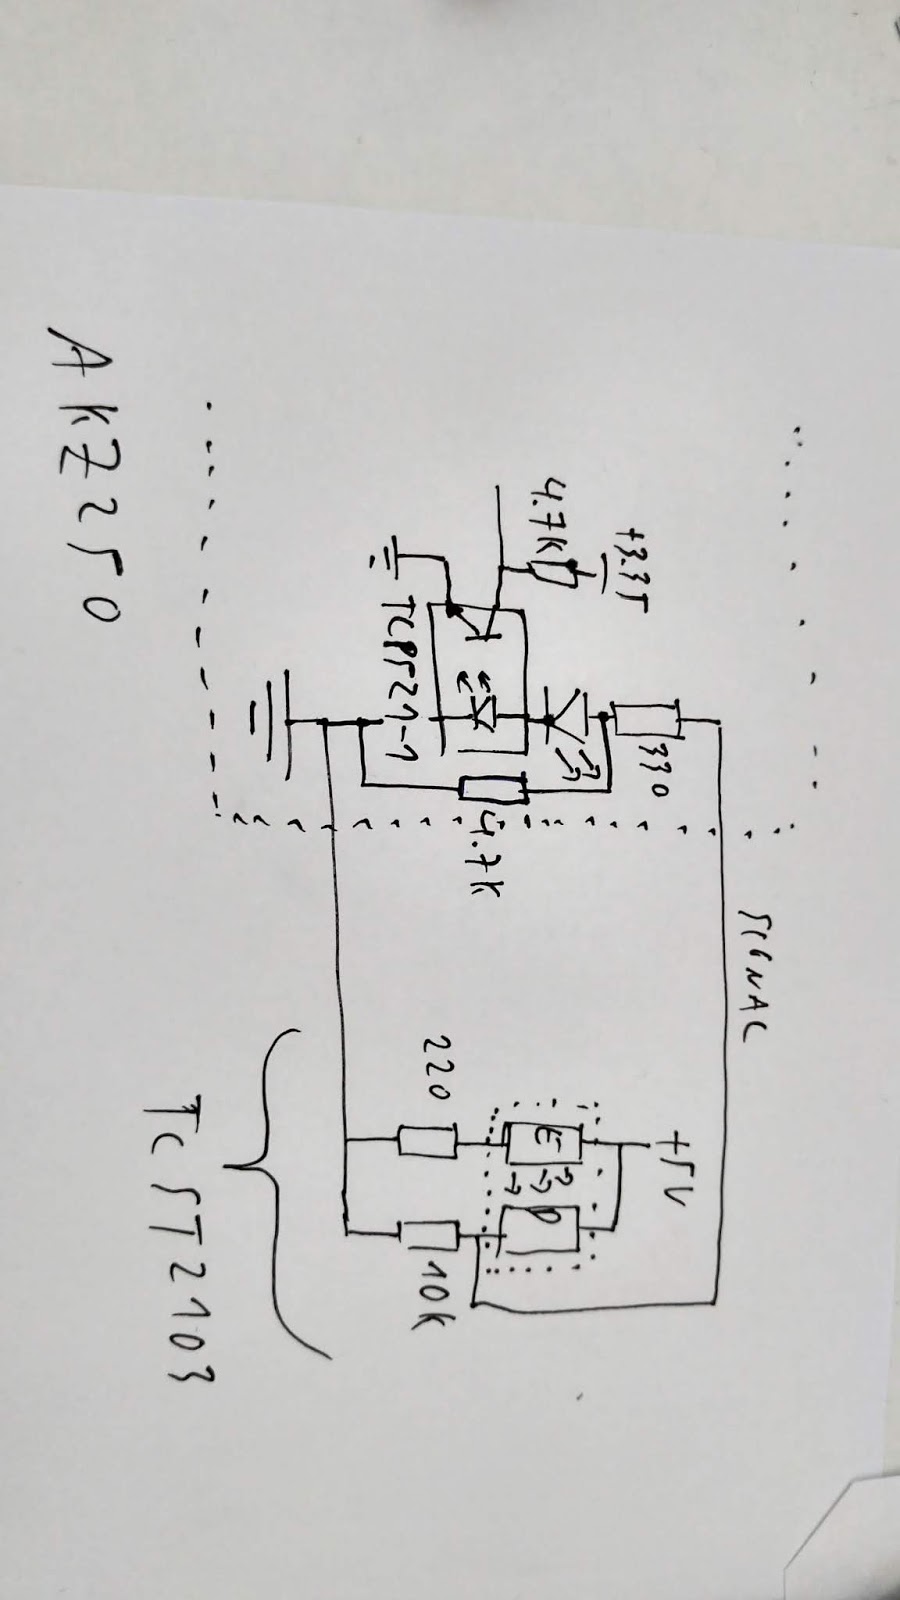 +3.3V
4.7K
330
SIGNAL
+5V
E
D
TLP521-1
4.7K
220
10K
AKZ250
TCST2103